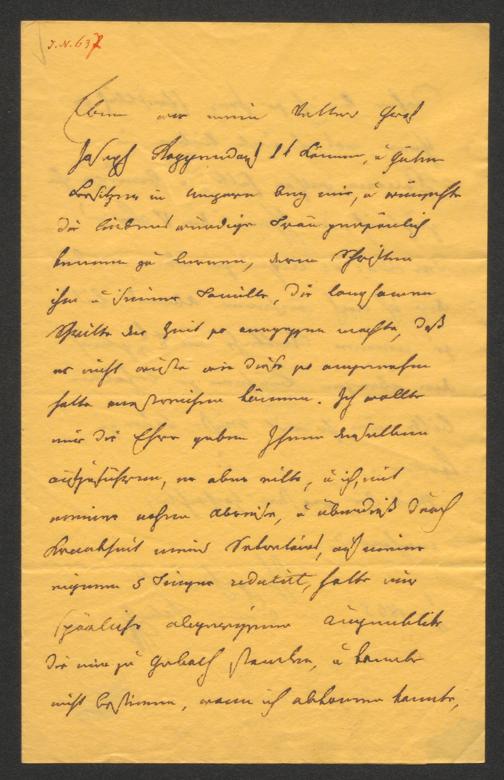 J.N. 637
Eben war mein Vetter Graf
Joseph kk Kämmerer, u Güter
besitzer in Ungarn bey mir, u wünschte
die liebenswürdige Frau persönlich
kennen zu lernen, deren Schriften
ihm u seiner Familie, die langsamen
Schritte der Zeit so angenehm machte, daß
er nicht wüßte wie diese so angenehm
hätte verstreichen können. Ich wollte
mir die Ehre geben Ihnen denselben
aufzuführen, er aber eilte, u ich, mit
meiner nahen Abreise, u überdieß durch
Krankheit meines Sekretärs, auf meine
eigenen 5 Finger reduziert, hatte nur
spärlich abgemessene Augenblicke
die mir zu Geboth standen, u konnte
nicht bestimmen, wann ich abkommen konnte,